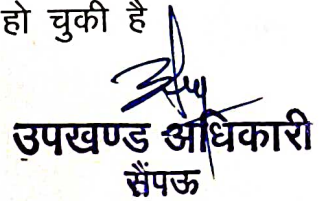 हो चुकी है
उपखण्ड अधिकारी
सैंपऊ